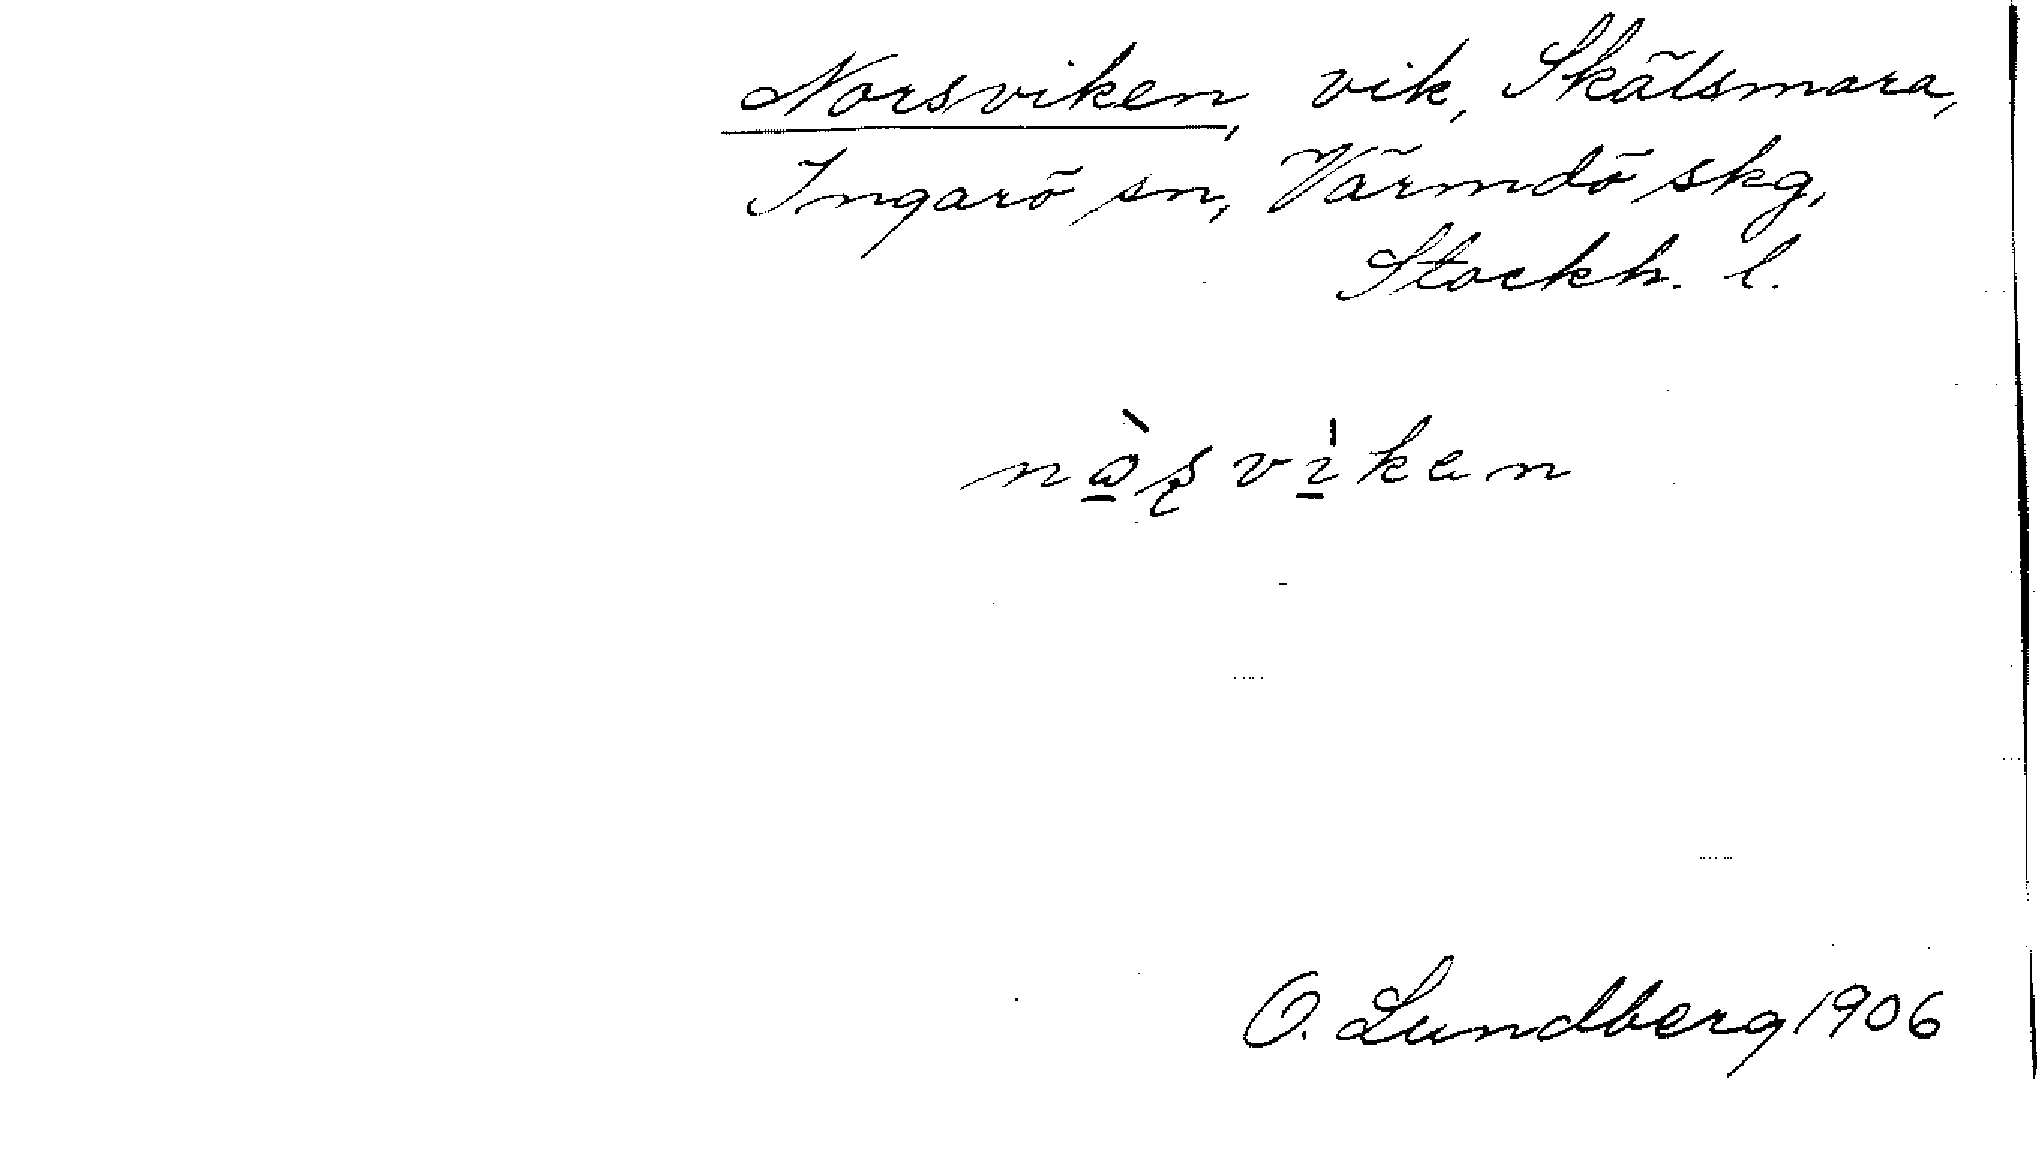 Norsviken, vik, Skälsmara,
Ingarö sn, Värmdö skg,
Stockh. l.
nòʂvìken
O. Lundberg 1906